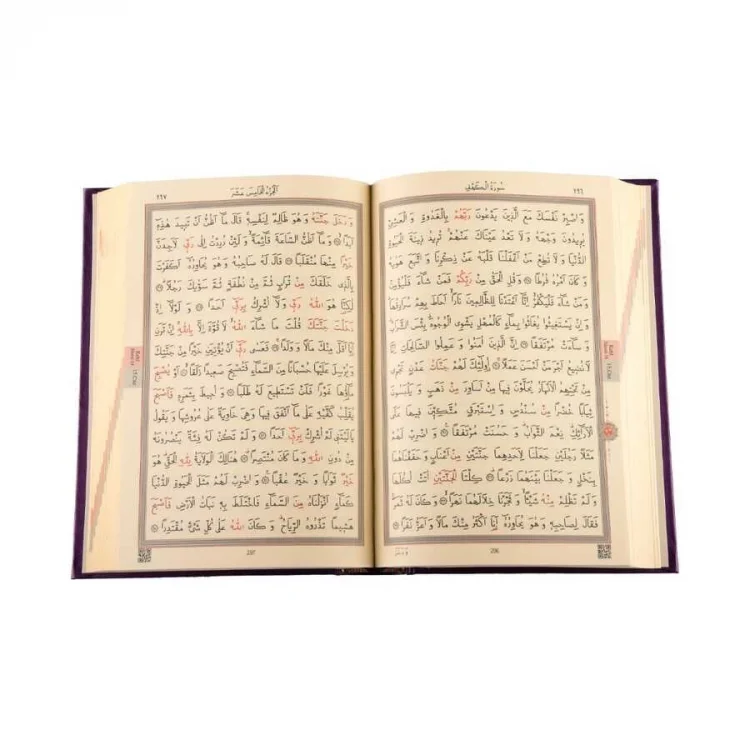 ٢٩٦ سُورَةُ الْكَهْفِ
وَاصْبِرْ نَفْسَكَ مَعَ الَّذِينَ يَدْعُونَ رَبَّهُمْ بِالْغَدٰوةِ وَالْعَشِيِّ
يُرِيدُونَ وَجْهَهُ وَلَا تَعْدُ عَيْنَاكَ عَنْهُمْ تُرِيدُ زِينَةَ الْحَيٰوةِ
الدُّنْيَا وَلَا تُطِعْ مَنْ اَغْفَلْنَا قَلْبَهُ عَنْ ذِكْرِنَا وَاتَّبَعَ هَوٰيهُ
وَكَانَ اَمْرُهُ فُرُطًا ۞ وَقُلِ الْحَقُّ مِنْ رَبِّكُمْ فَمَنْ شَاءَ فَلْيُؤْمِنْ
وَمَنْ شَاءَ فَلْيَكْفُرْ اِنَّا اَعْتَدْنَا لِلظَّالِمِينَ نَارًا اَحَاطَ بِهِمْ سُرَادِقُهَا
وَاِنْ يَسْتَغِيثُوا يُغَاثُوا بِمَاءٍ كَالْمُهْلِ يَشْوِي الْوُجُوهَ بِئْسَ الشَّرَابُ
وَسَاءَتْ مُرْتَفَقًا ۞ اِنَّ الَّذِينَ اٰمَنُوا وَعَمِلُوا الصَّالِحَاتِ اِنَّا
لَا نُضِيعُ اَجْرَ مَنْ اَحْسَنَ عَمَلًا ۞ اُولٰئِكَ لَهُمْ جَنَّاتُ عَدْنٍ تَجْرِي
مِنْ تَحْتِهِمُ الْاَنْهَارُ يُحَلَّوْنَ فِيهَا مِنْ اَسَاوِرَ مِنْ ذَهَبٍ وَيَلْبَسُونَ
ثِيَابًا خُضْرًا مِنْ سُنْدُسٍ وَاِسْتَبْرَقٍ مُتَّكِئِينَ فِيهَا عَلَى
الْاَرَائِكِ نِعْمَ الثَّوَابُ وَحَسُنَتْ مُرْتَفَقًا ۞ وَاضْرِبْ لَهُمْ
مَثَلًا رَجُلَيْنِ جَعَلْنَا لِاَحَدِهِمَا جَنَّتَيْنِ مِنْ اَعْنَابٍ وَحَفَفْنَاهُمَا
بِنَخْلٍ وَجَعَلْنَا بَيْنَهُمَا زَرْعًا ۞ كِلْتَا الْجَنَّتَيْنِ اٰتَتْ اُكُلَهَا
وَلَمْ تَظْلِمْ مِنْهُ شَيْئًا وَفَجَّرْنَا خِلَالَهُمَا نَهَرًا ۞ وَكَانَ لَهُ ثَمَرٌ
فَقَالَ لِصَاحِبِهِ وَهُوَ يُحَاوِرُهُ اَنَا اَكْثَرُ مِنْكَ مَالًا وَاَعَزُّ نَفَرًا ۞
296
15.Cüz
اَلْجُزْءُ الْخَامِسَ عَشَرَ ٢٩٧
وَدَخَلَ جَنَّتَهُ وَهُوَ ظَالِمٌ لِنَفْسِهِ قَالَ مَا اَظُنُّ اَنْ تَبِيدَ هٰذِهِ
اَبَدًا ۞ وَمَا اَظُنُّ السَّاعَةَ قَائِمَةً وَلَئِنْ رُدِدْتُ اِلٰى رَبِّي لَاَجِدَنَّ
خَيْرًا مِنْهَا مُنْقَلَبًا ۞ قَالَ لَهُ صَاحِبُهُ وَهُوَ يُحَاوِرُهُ اَكَفَرْتَ
بِالَّذِي خَلَقَكَ مِنْ تُرَابٍ ثُمَّ مِنْ نُطْفَةٍ ثُمَّ سَوّٰيكَ رَجُلًا ۞
لٰكِنَّا هُوَ اللّٰهُ رَبِّي وَلَا اُشْرِكُ بِرَبِّي اَحَدًا ۞ وَلَوْلَا اِذْ
دَخَلْتَ جَنَّتَكَ قُلْتَ مَا شَاءَ اللّٰهُ لَا قُوَّةَ اِلَّا بِاللّٰهِ اِنْ تَرَنِ
اَنَا اَقَلَّ مِنْكَ مَالًا وَوَلَدًا ۞ فَعَسٰى رَبِّي اَنْ يُؤْتِيَنِ خَيْرًا مِنْ جَنَّتِكَ
وَيُرْسِلَ عَلَيْهَا حُسْبَانًا مِنَ السَّمَاءِ فَتُصْبِحَ صَعِيدًا زَلَقًا ۞ اَوْ يُصْبِحَ
مَاؤُهَا غَوْرًا فَلَنْ تَسْتَطِيعَ لَهُ طَلَبًا ۞ وَاُحِيطَ بِثَمَرِهِ فَاَصْبَحَ
يُقَلِّبُ كَفَّيْهِ عَلٰى مَا اَنْفَقَ فِيهَا وَهِيَ خَاوِيَةٌ عَلٰى عُرُوشِهَا وَيَقُولُ
يَا لَيْتَنِي لَمْ اُشْرِكْ بِرَبِّي اَحَدًا ۞ وَلَمْ تَكُنْ لَهُ فِئَةٌ يَنْصُرُونَهُ
مِنْ دُونِ اللّٰهِ وَمَا كَانَ مُنْتَصِرًا ۞ هُنَالِكَ الْوَلَايَةُ لِلّٰهِ الْحَقِّ هُوَ
خَيْرٌ ثَوَابًا وَخَيْرٌ عُقْبًا ۞ وَاضْرِبْ لَهُمْ مَثَلَ الْحَيٰوةِ الدُّنْيَا
كَمَاءٍ اَنْزَلْنَاهُ مِنَ السَّمَاءِ فَاخْتَلَطَ بِهِ نَبَاتُ الْاَرْضِ فَاَصْبَحَ
هَشِيمًا تَذْرُوهُ الرِّيَاحُ وَكَانَ اللّٰهُ عَلٰى كُلِّ شَيْءٍ مُقْتَدِرًا ۞
297
15.Cüz